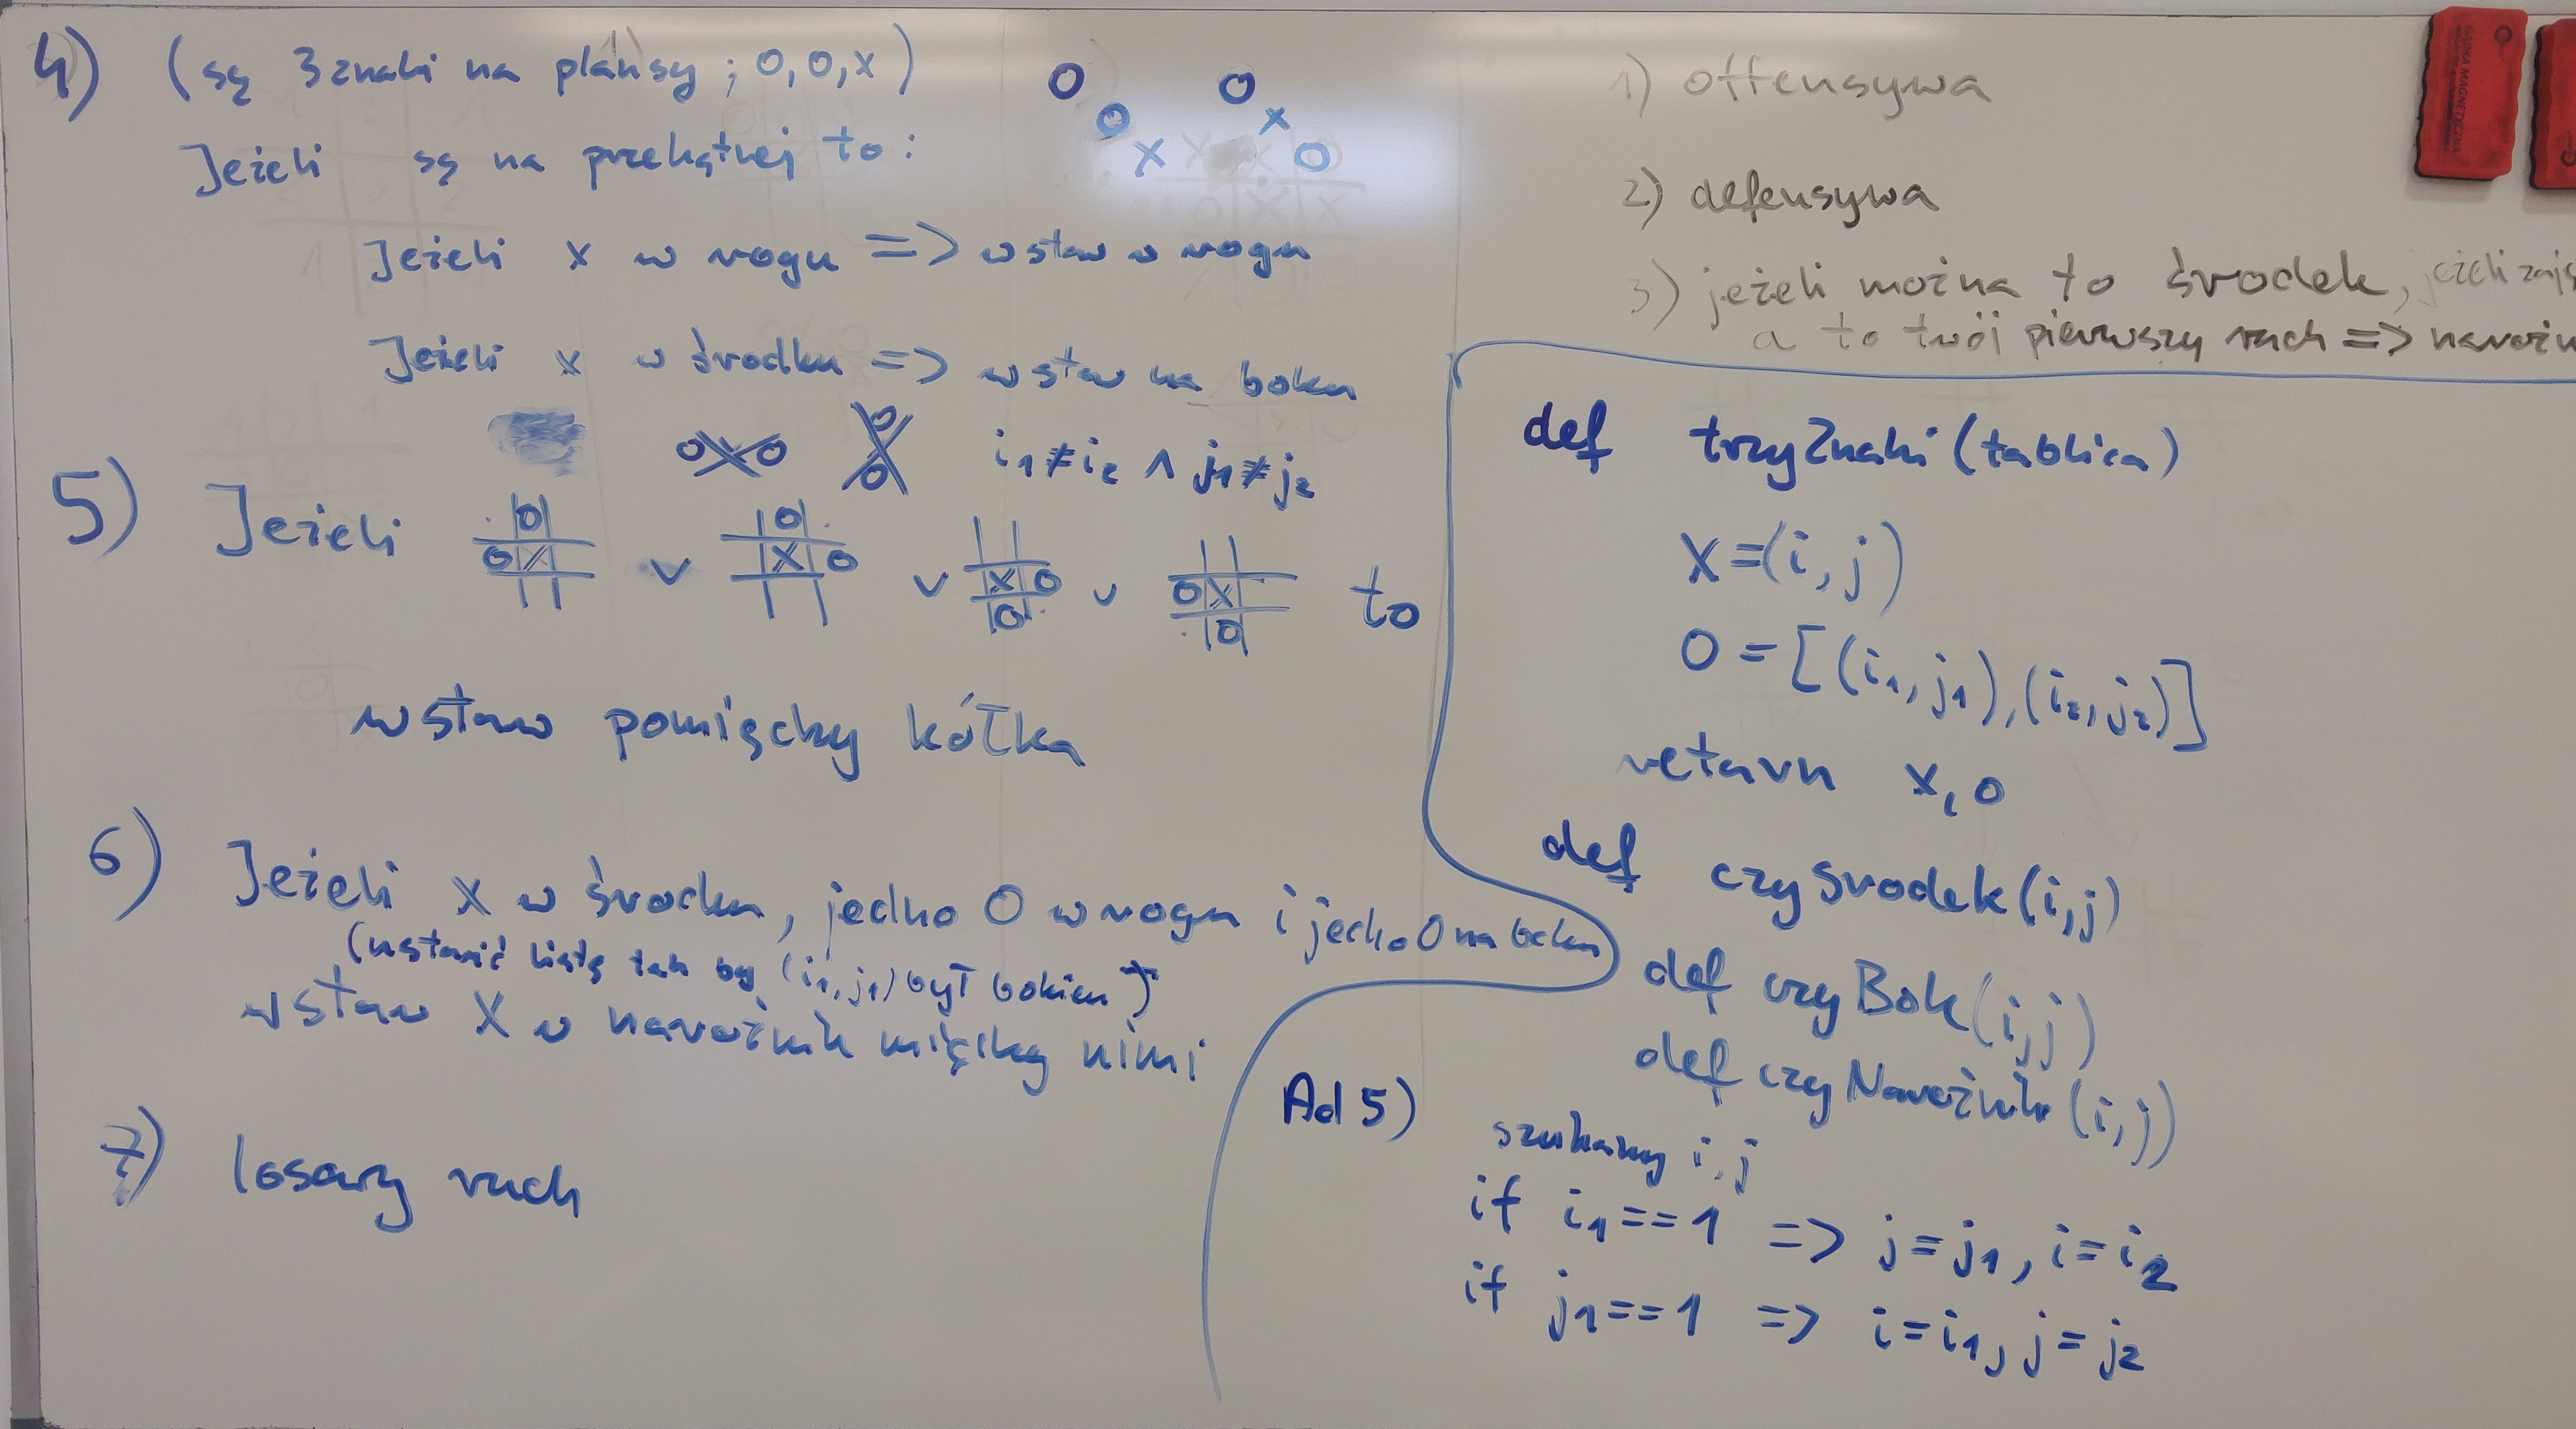 4) (są 3 znaki na planszy ; O, O, X)
O
O
X
O
X
O
Jeżeli są na przekątnej to :
Jeżeli X w rogu => wstaw w rogu
Jeżeli X w środku => wstaw na boku
OXO
O
X
O
i1≠i2 ∧ j1≠j2
5) Jeżeli
O
OX
v
O
XO
v
XO
O
v
OX
O
to
wstaw pomiędzy kółka
6) Jeżeli X w środku, jedno O w rogu i jedno O na boku
(ustawić listę tak by (i1, j1) był bokiem)
wstaw X w narożnik między nimi
7) losowy ruch
1) offensywa
2) defensywa
3) jeżeli można to środek, jeżeli
a to twój pierwszy ruch =>
def trzyZnaki (tablica)
X = (i, j)
O = [(i1, j1), (i2, j2)]
return X, O
def czySrodek (i, j)
def czyBok (i, j)
def czyNarożnik (i, j)
Ad 5)
szukamy i, j
if i1 == 1 => j = j1, i = i2
if j1 == 1 => i = i1, j = j2